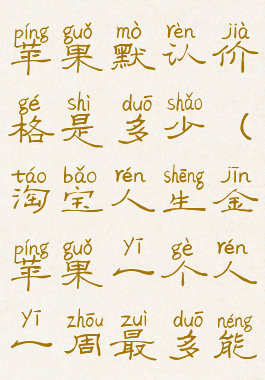 píng guǒ mò rèn jià
苹果默认价
gé shì duō shǎo
格是多少（
táo bǎo rén shēng jīn
淘宝人生金
píng guǒ yī gè rén
苹果一个人
yī zhōu zuì duō néng
一周最多能